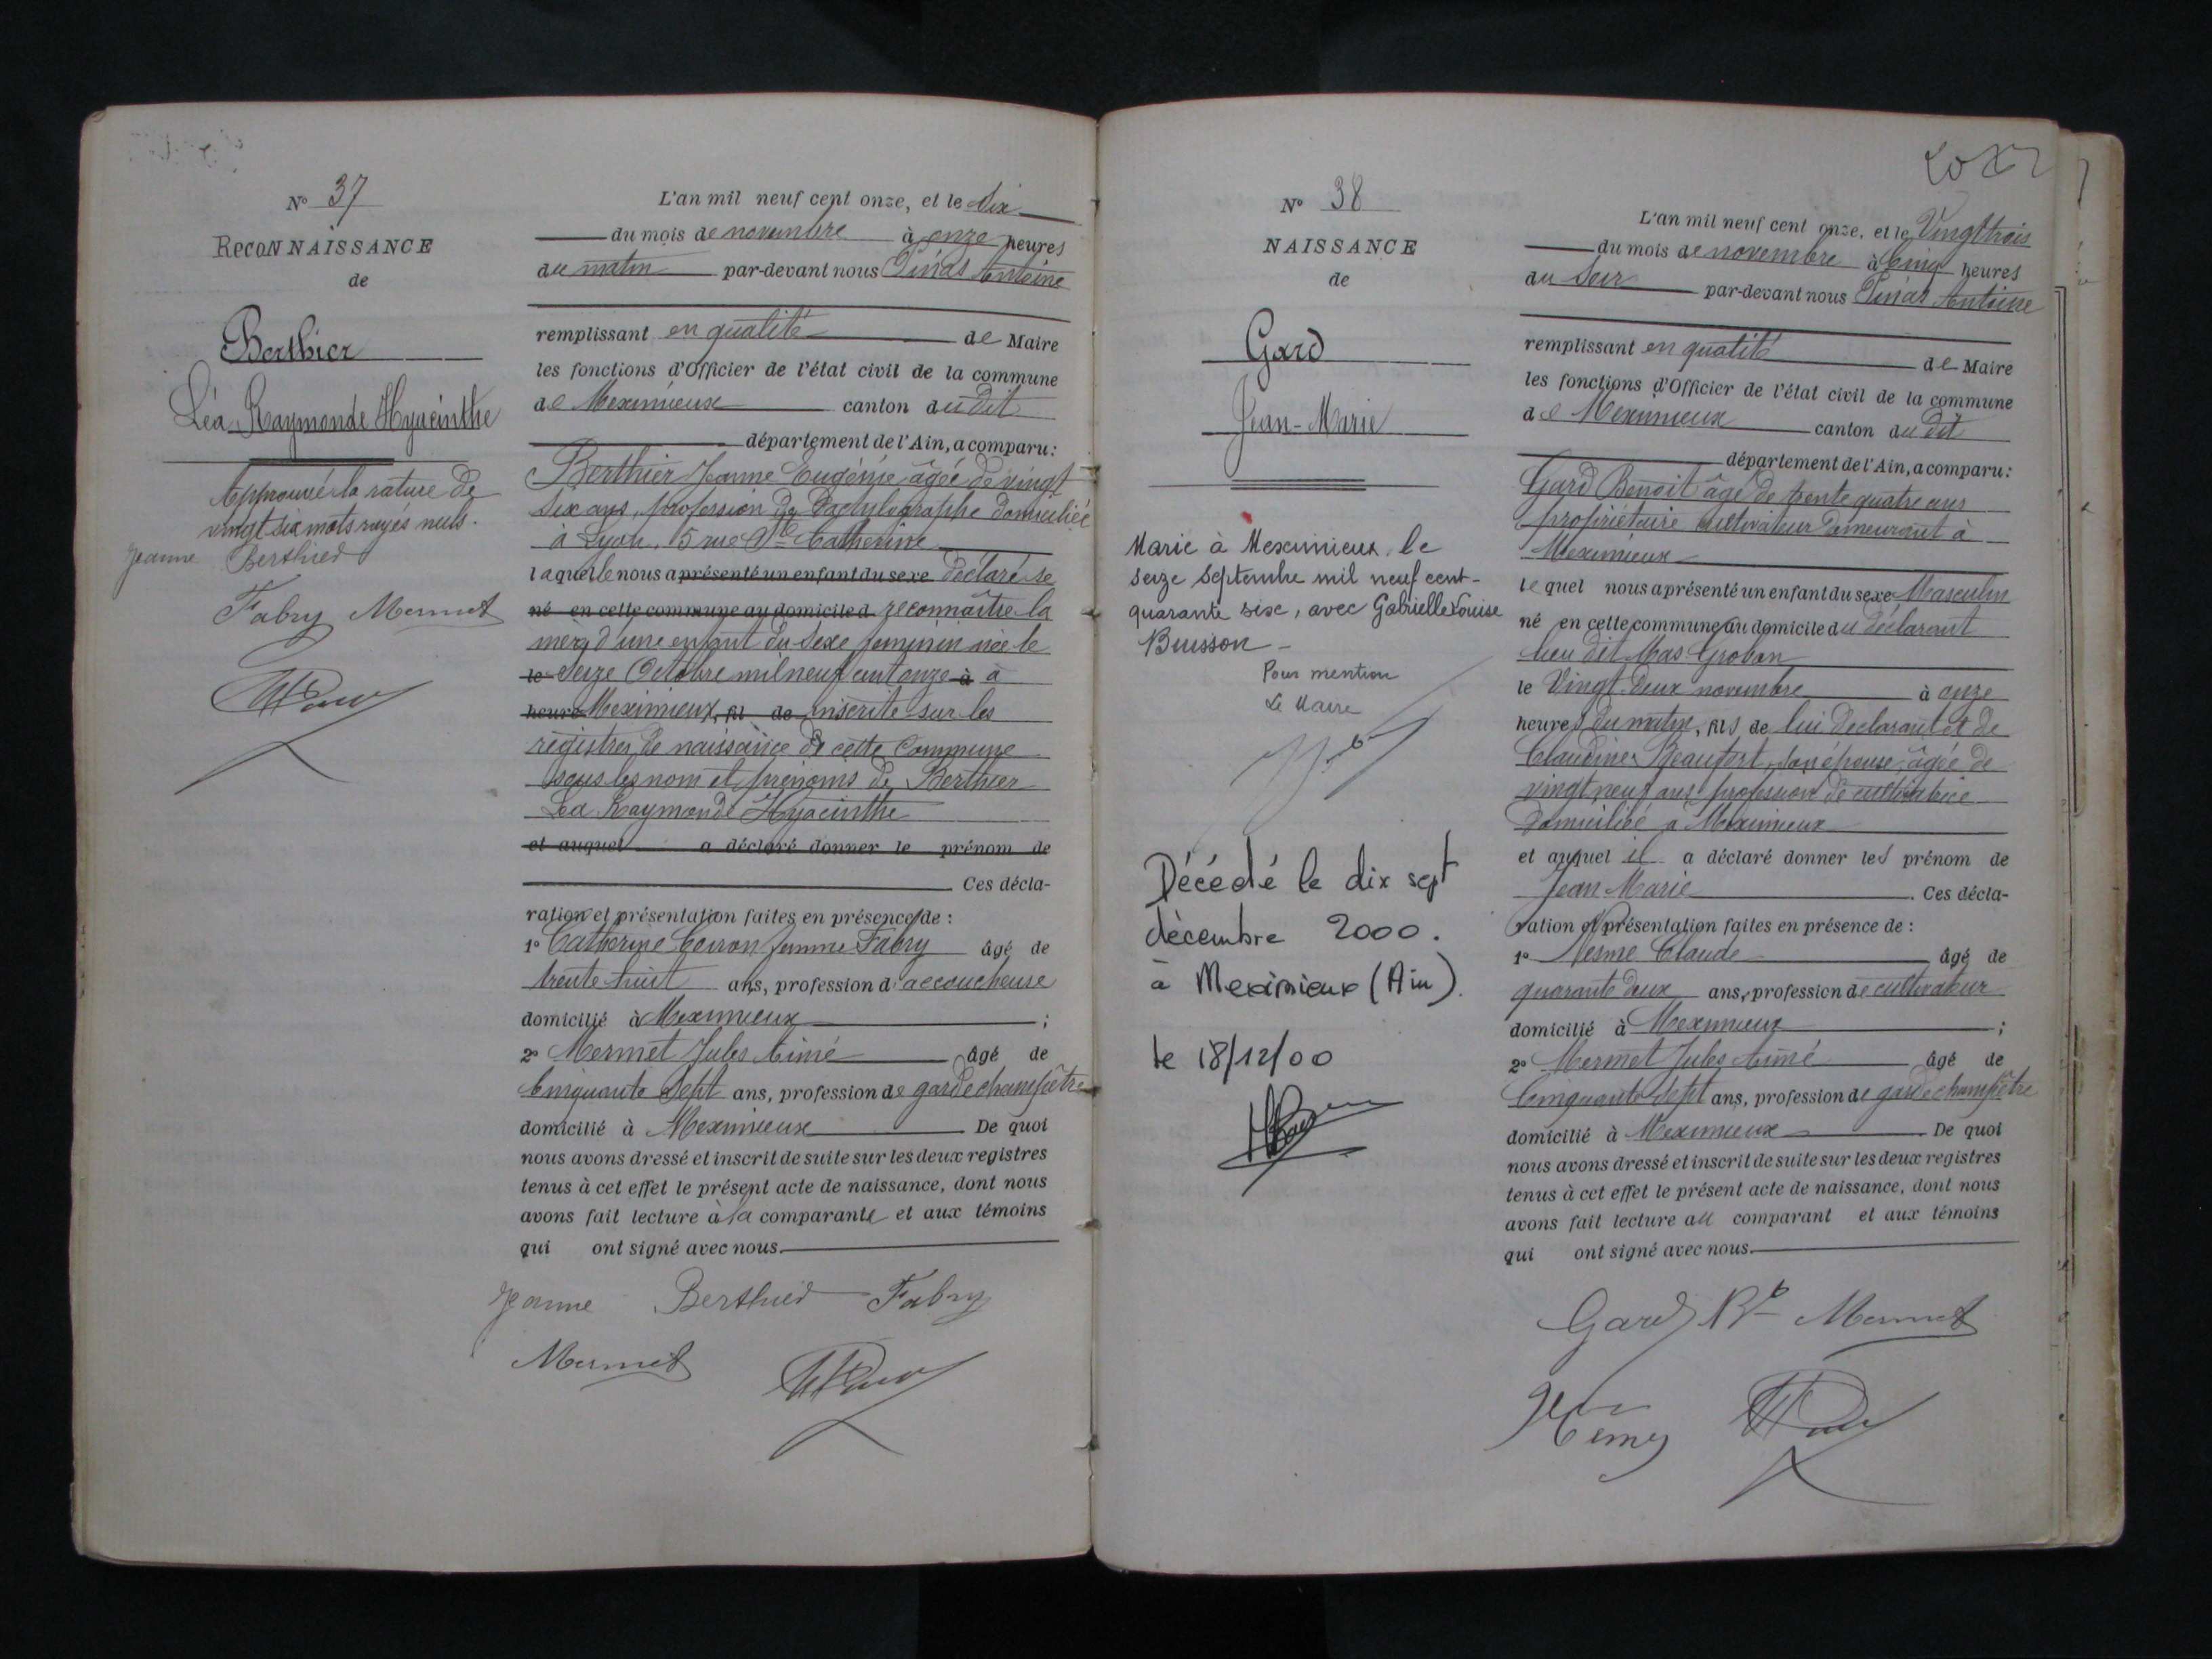 N° 37
ReconNAISSANCE
de
Berthier
Léa Raymonde Hyacinthe
Approuvé la rature de
vingt six mots rayés nuls.
Jeanne Berthier
Fabry Mermet
L'an mil neuf cent onze, et le dix
du mois de novembre à onze heures
du matin par-devant nous Antoine
remplissant en qualité de Maire
les fonctions d'Officier de l'état civil de la commune
de Meximieux canton du dit
département de l'Ain, a comparu:
Berthier Jeanne Eugénie âgée de vingt
six ans, profession de Dactylographe domiciliée
à Lyon, 5 rue Ste Catherine
laquelle nous a présenté un enfant du sexe déclaré se
né en cette commune au domicile d reconnaître la
mère d'une enfant du sexe féminin née le
le seize Octobre mil neuf cent onze à à
heure Meximieux, fil de inscrite sur les
registres de naissance de cette Commune
sous les nom et prénoms de Berthier
Léa Raymonde Hyacinthe
et auquel a déclaré donner le prénom de
Ces décla-
ration et présentation faites en présence de :
1° Catherine femme Fabry âgé de
trente huit ans, profession d'accoucheuse
domicilié à Meximieux ;
2° Mermet Jules Aimé âgé de
Cinquante sept ans, profession de garde champêtre
domicilié à Meximieux De quoi
nous avons dressé et inscrit de suite sur les deux registres
tenus à cet effet le présent acte de naissance, dont nous
avons fait lecture à la comparante et aux témoins
qui ont signé avec nous.
Jeanne Berthier Fabry
Mermet
N° 38
NAISSANCE
de
Gard
Jean-Marie
Marié à Meximieux, le
seize Septembre mil neuf cent-
quarante six, avec Gabrielle Louise
Buisson -
Pour mention
Le Maire
Décédé le dix sept
décembre 2000.
à Meximieux (Ain).
le 18/12/00
L'an mil neuf cent onze, et le Vingt trois
du mois de novembre à cinq heures
du Soir par-devant nous Antoine
remplissant en qualité de Maire
les fonctions d'Officier de l'état civil de la commune
de Meximieux canton du dit
département de l'Ain, a comparu:
Gard Benoit âgé de trente quatre ans
propriétaire cultivateur demeurant à
Meximieux
lequel nous a présenté un enfant du sexe Masculin
né en cette commune au domicile du déclarant
lieu dit Mas Groban
le Vingt deux novembre à onze
heures du matin, fils de lui déclarant et de
Claudine Beaufort, son épouse âgée de
vingt neuf ans profession de cultivatrice
domiciliée à Meximieux
et auquel il a déclaré donner les prénom de
Jean Marie . Ces décla-
ration et présentation faites en présence de :
1° Nesme Claude âgé de
quarante deux ans, profession de cultivateur
domicilié à Meximieux ;
2° Mermet Jules Aimé âgé de
Cinquante sept ans, profession de garde champêtre
domicilié à Meximieux De quoi
nous avons dressé et inscrit de suite sur les deux registres
tenus à cet effet le présent acte de naissance, dont nous
avons fait lecture au comparant et aux témoins
qui ont signé avec nous.
Gard Bt Mermet